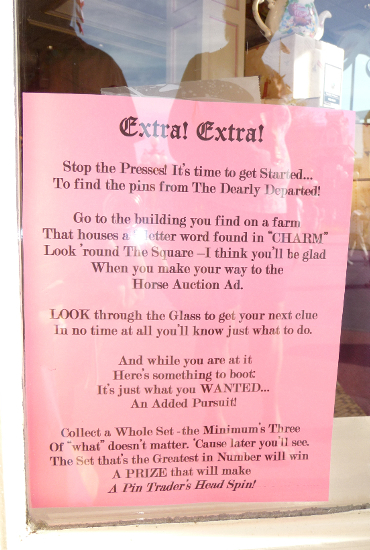 Extra! Extra!
Stop the Presses! It's time to get Started...
To find the pins from The Dearly Departed!
Go to the building you find on a farm
That houses a letter word found in "CHARM"
Look 'round The Square –I think you'll be glad
When you make your way to the
Horse Auction Ad.
LOOK through the Glass to get your next clue
In no time at all you'll know just what to do.
And while you are at it
Here's something to boot:
It's just what you WANTED...
An Added Pursuit!
Collect a Whole Set -the Minimum's Three
Of "what" doesn't matter. 'Cause later you'll see.
The Set that's the Greatest in Number will win
A PRIZE that will make
A Pin Trader's Head Spin!